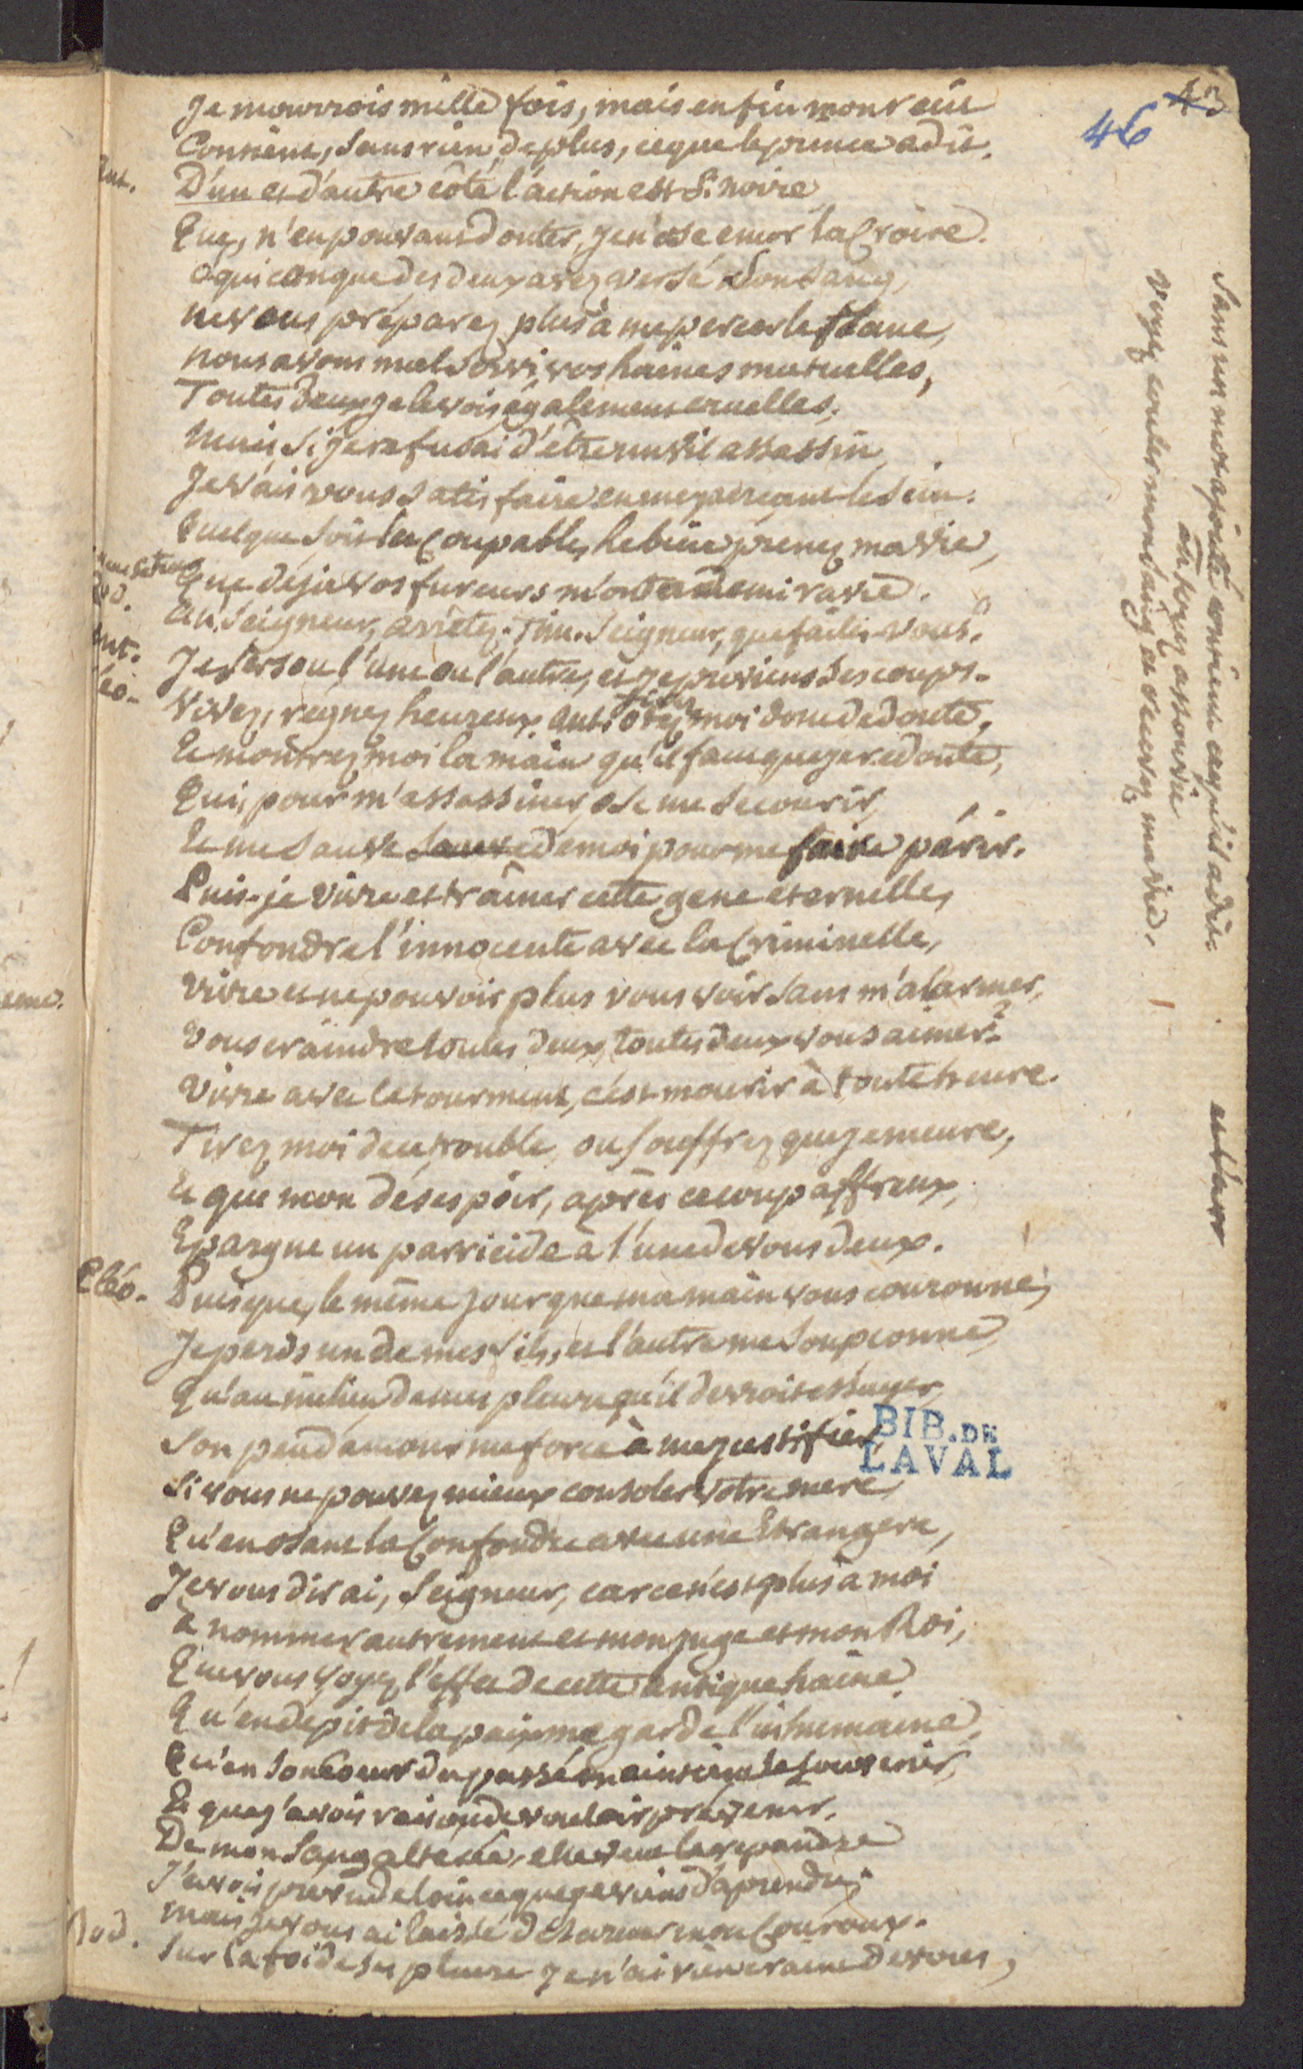 45
46
Je mourrois mille fois, mais enfin mon récit
Contient, sans rien de plus, ce que le prince a dit.
Ant. D'un et d'autre côté l'action est si noire
Que, n'en pouvant douter, je n'ose encor la Croire.
O quiconque des deux avez versé Son Sang,
ne vous préparez plus à me percer le flanc,
nous avons mal servi vos haines mutuelles,
Toutes deux je le vois également cruelles.
mais si je refusai d'être un vil assassin,
Je vais vous satisfaire en me perçant le Sein.
Quelque soit la Coupable, hebien prenez ma vie,
Que deja vos fureurs m'ont à demi ravie.
Rod. Ah, Seigneur, arrêtez. Tim. Seigneur, que faites vous?
Ant. Je sers ou l'une ou l'autre, et je previens Ses coups.
Cléo. Vivez, regnez heureux. Anti. ôtez moi donc de doute,
Et montrez moi la main qu'il faut que je redoute,
Qui, pour m'assassiner, ose me Secourir,
Et me Sauve Sauve de moi pour me faire périr.
Puis-je vivre et traîner cette gene eternelle,
Confondre l'innocente avec la Criminelle,
vivre et ne pouvoir plus vous voir Sans m'alarmer,
Vous craindre toutes deux, toutes deux vous aimer?
Vivre avec ce tourment, c'est mourir à toute heure.
Tirez moi de ce trouble, ou souffrez que je meure,
Et que mon désespoir, après ce coup affreux,
Epargne un parricide à l'une de vous deux.
Cléo. Puisque, le même jour que ma main vous couronne,
Je perds un de mes fils, et l'autre me Soupconne,
Qu'au milieu de mes pleurs qu'il devroit essuyer,
Son peu d'amour me force à me justifier,
Si vous ne pouvez mieux consoler votre mere
Qu'en osant la Confondre avec une Etrangere,
Je vous dirai, Seigneur, car ce n'est plus à moi
à nommer autrement et mon juge et mon Roi,
Que vous voyez l'effet de cette antique haine
Qu'en depit de la paix me garde l'inhumaine,
Qu'en Son Coeur du passé maintient le Souvenir,
Et que j'avois raison de vouloir prévenir.
De mon Sang alterée, elle veut le repandre
J'avois prevu de loin ce que je viens d'aprendre;
mais je vous ai laissé desarmer mon Couroux.
Rod. Sur la foi de ses pleurs je n'ai rien craint de vous,
Sans un mot ajouté contient ce qu'il a dit.
assouvie
voyez couler mon Sang et recevez ma vie.
BIB. DE
LAVAL